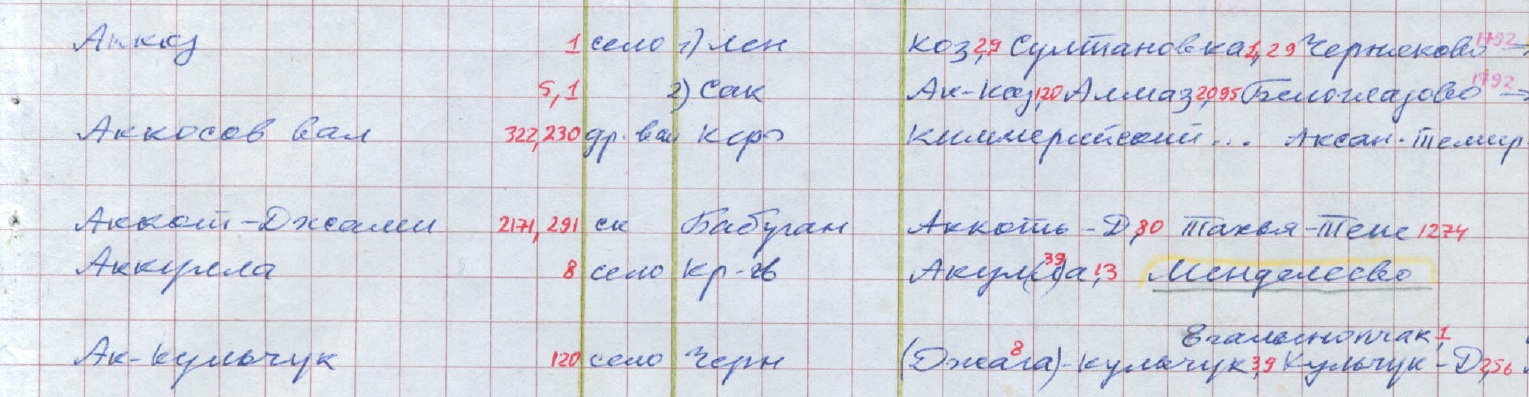 Аккоз 1 село 1) Лен Коз,29 Султановка1,29 Черняково 1792 →
5,1 2) Сак Ак-Коз,120 Алмаз,2095 Белоглазово 1792 →
Аккосов вал 322,230 др. вал Кер Киммерийский... Аксан-Темир
Аккош-Джами 2171,291 ск Бабуган Аккошь -Д,80 Тахья-Тепе 1274
Аккула 8 село Кр-гв Акул( )а,13 39 Менделеево
1
Ак-Кульчук 120 село Черн (Джага)-Кульчук39 8 Кульчук-Д,256